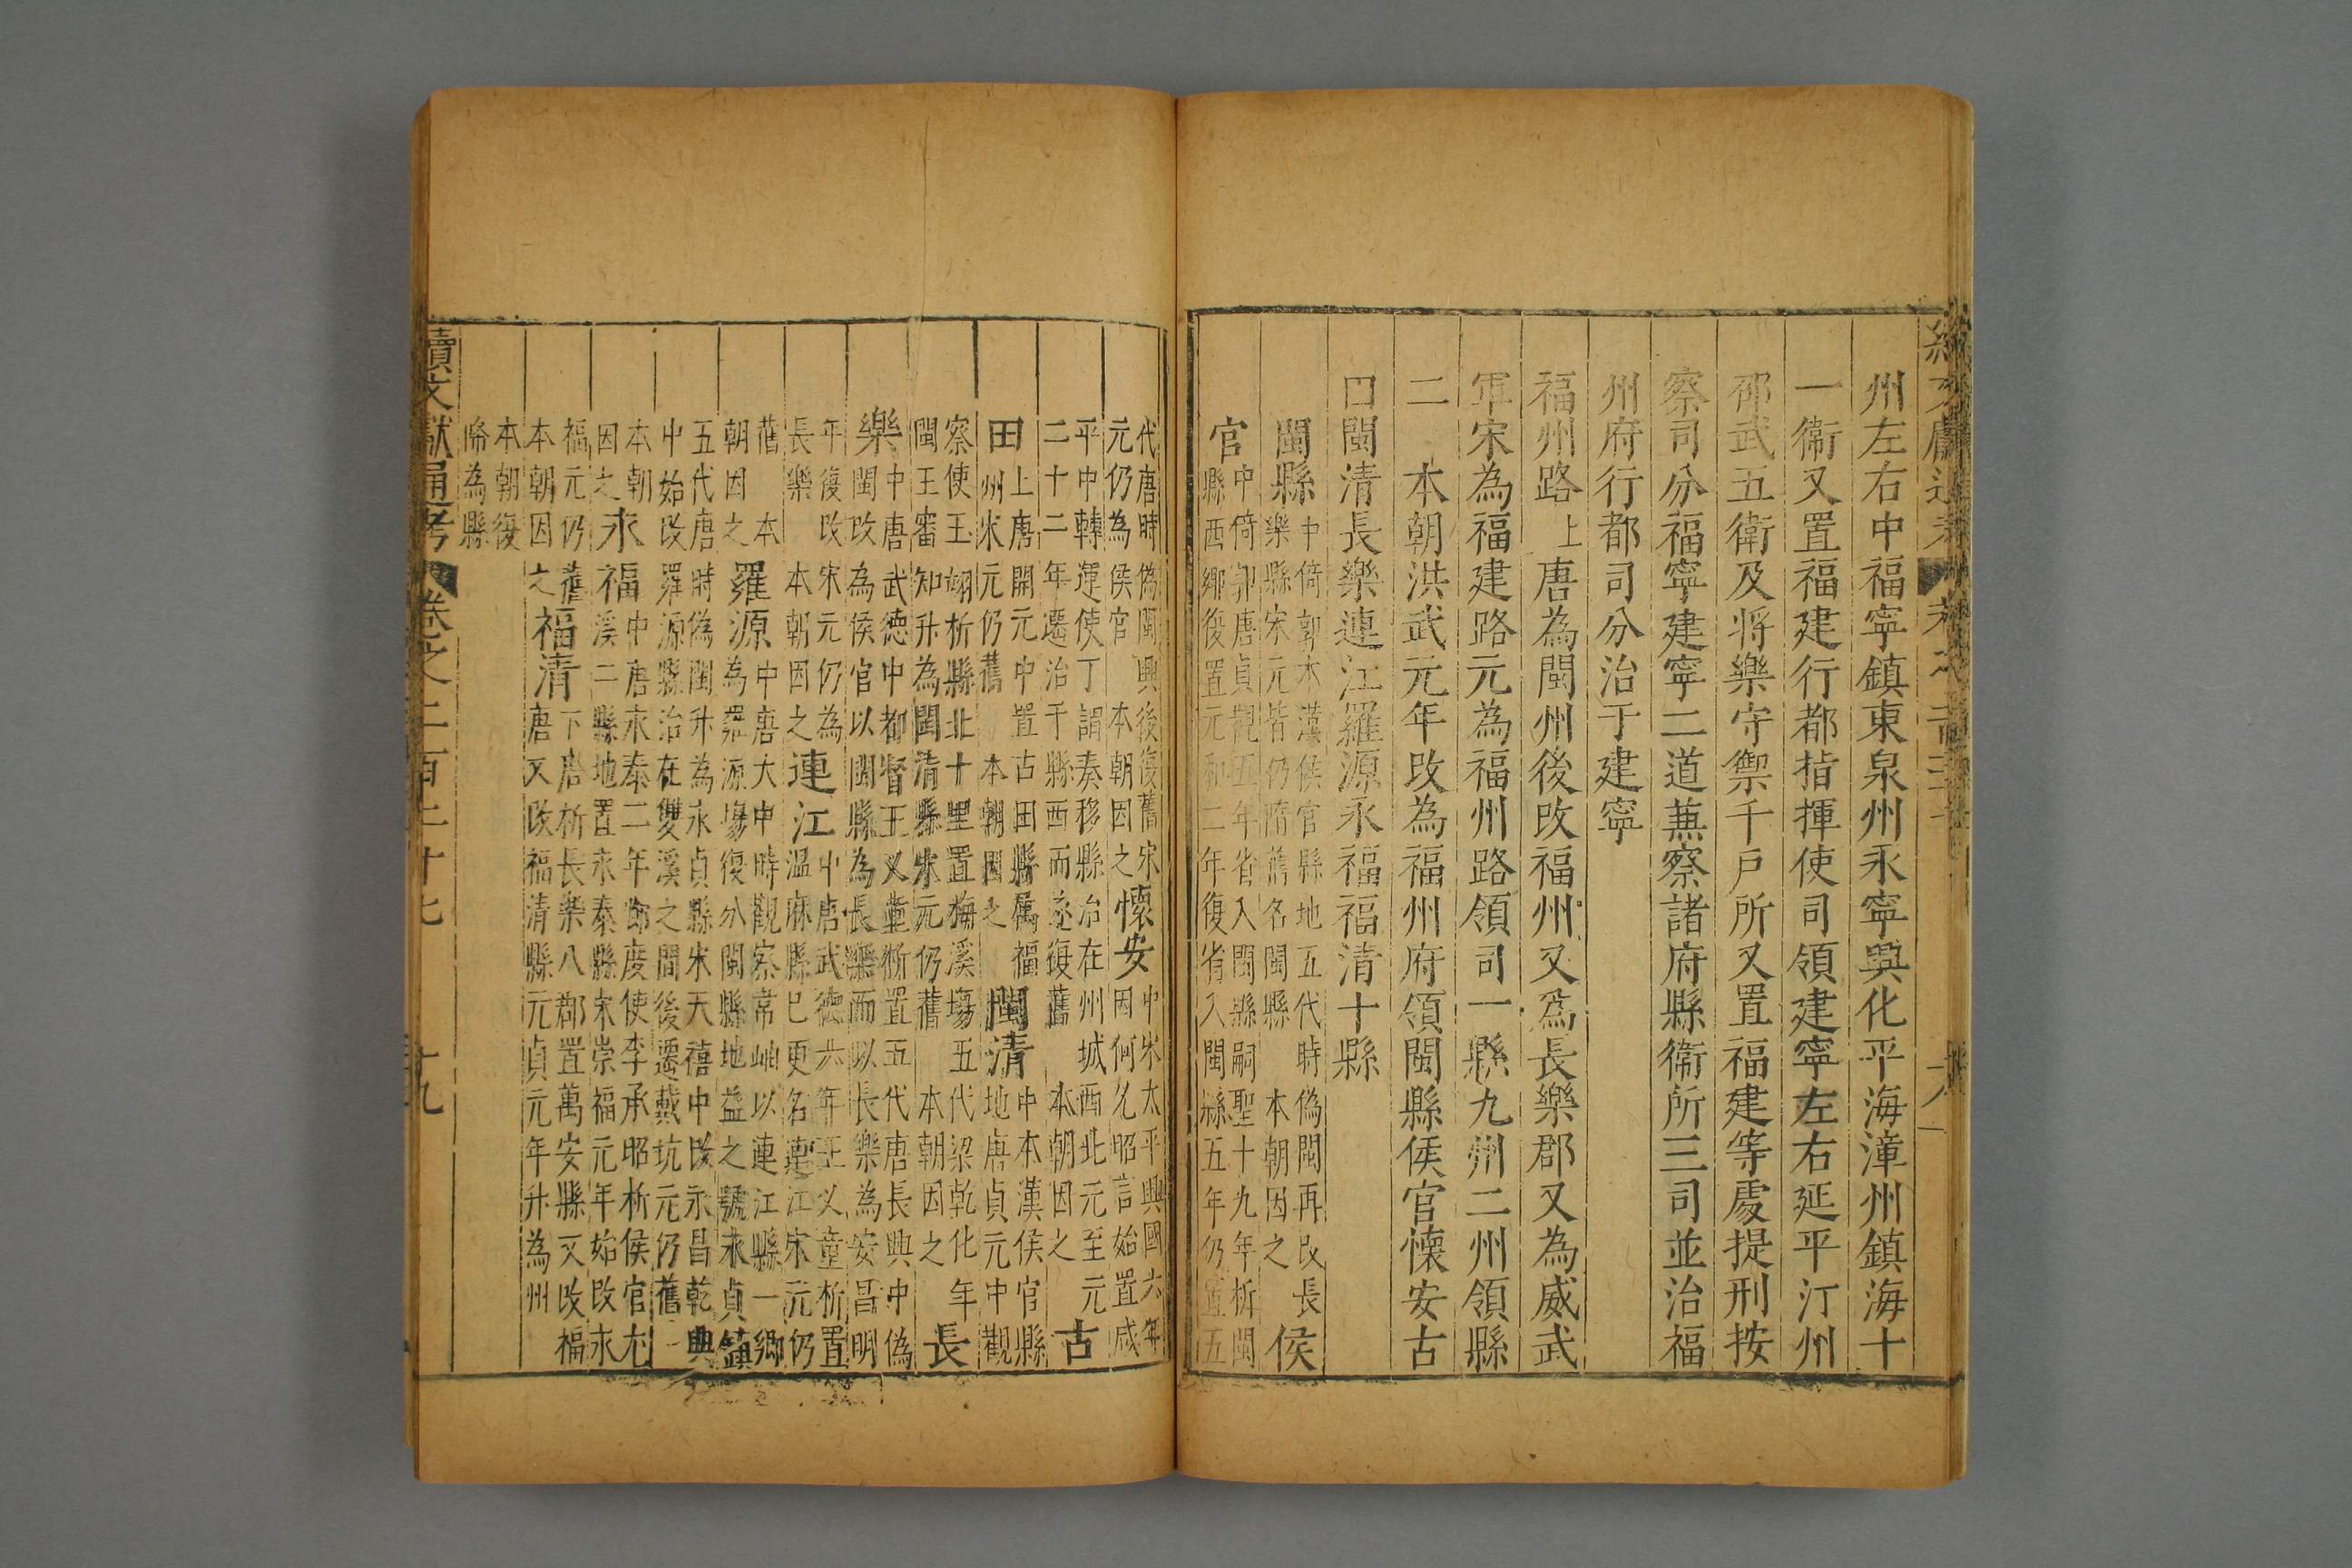 州左右中福寧鎮東泉州永寧興化平海漳州鎮海十
一衞又置福建行都指揮使司領建寧左右延平汀州
邵武五衛及將樂守禦千戶所又置福建等處提刑按
察司分福寧建寧二道兼察諸府縣衞所三司並治福
州府行都司分治于建寧
福州路上唐為閩州後改福州又為長樂郡又為威武
軍宋為福建路元為福州路領司一縣九州二州領縣
二 本朝洪武元年改為福州府領閩縣侯官懷安古
田閩清長樂連江羅源永福福清十縣
閩縣 中倚郭本漢侯官縣地五代時偽閩再改長
樂縣宋元皆仍隋舊名閩縣 本朝因之 侯
官 中倚郭唐貞觀五年省入閩縣嗣聖十九年析閩
縣西鄉復置元和二年復省入閩縣五年仍置五
代唐時偽閩興後復舊宋
元仍為侯官 本朝因之 懷安 中宋太平興國六年
因何允昭言始置咸
平中轉運使丁謂奏移縣治在州城西北元至元
二十二年遷治于縣西而逐復舊 本朝因之 古
田 上唐開元中置古田縣屬福
州宋元仍舊 本朝因之 閩清 中本漢侯官縣
地唐貞元中觀
察使王翃析縣北十里置梅溪塲五代梁乾化年
閩王審知升為閩清縣宋元仍舊 本朝因之 長
樂 中唐武德中都督王义童析置五代唐長興中偽
閩改為侯官以閩縣為長樂而以長樂為安昌明
年復改宋元仍為
長樂 本朝因之 連江 中唐武德六年王义童析置
温麻縣已更名連江宋元仍
舊 本
朝因之 羅源 中唐大中時觀察常岫以連江縣一鄉
為羅源塲復分閩縣地益之號永貞鎮
五代唐時偽閩升為永貞縣宋天禧中改永昌乾興
中始改羅源縣治在雙溪之間後遷戴坑元仍舊
本朝
因之 永福 中唐永泰二年節度使李承昭析侯官尤
溪二縣地置永泰縣宋崇福元年始改永
福元仍舊
本朝因之 福清 下唐析長樂八郡置萬安縣又改福
唐又改福清縣元貞元年升為州
本朝復
降為縣
續文獻通考 卷之二百二十七 十九